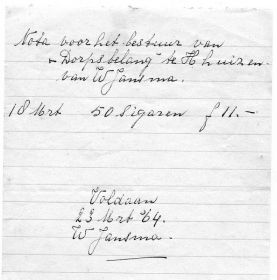 Nota voor het bestuur van
"Dorpsbelang" te H huizen.
van W Jansma.
18 Mrt 50 Sigaren f 11.-
Voldaan
23 Mrt '64.
W Jansma.